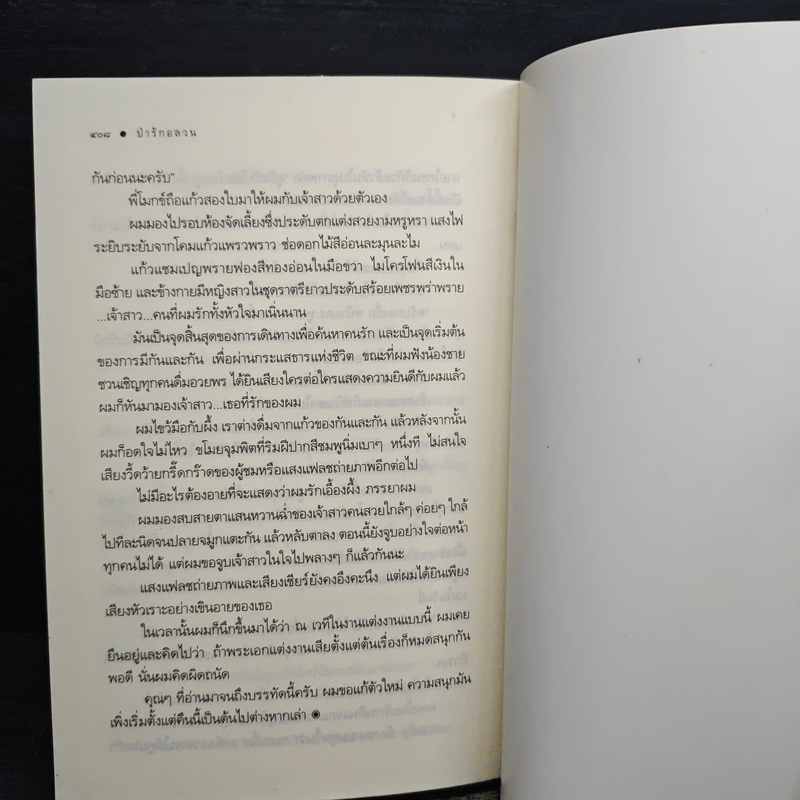 ๔๐๘ ● ป่ารักอลวน
กันก่อนนะครับ"
พี่โมกข์ถือแก้วสองใบมาให้ผมกับเจ้าสาวด้วยตัวเอง
ผมมองไปรอบห้องจัดเลี้ยงซึ่งประดับตกแต่งสวยงามหรูหรา แสงไฟ
ระยิบระยับจากโคมแก้วแพรวพราว ช่อดอกไม้สีอ่อนละมุนละไม
แก้วแชมเปญพรายฟองสีทองอ่อนในมือขวา ไมโครโฟนสีเงินใน
มือซ้าย และข้างกายมีหญิงสาวในชุดราตรียาวประดับสร้อยเพชรพร่างพราย
...เจ้าสาว...คนที่ผมรักทั้งหัวใจมาเนิ่นนาน
มันเป็นจุดสิ้นสุดของการเดินทางเพื่อค้นหาคนรัก และเป็นจุดเริ่มต้น
ของการมีกันและกัน เพื่อผ่านกระแสธารแห่งชีวิต ขณะที่ผมฟังน้องชาย
ชวนเชิญทุกคนดื่มอวยพร ได้ยินเสียงใครต่อใครแสดงความยินดีกับผมแล้ว
ผมก็หันมามองเจ้าสาว...เธอที่รักของผม
ผมไขว้มือกับผึ้ง เราต่างดื่มจากแก้วของกันและกัน แล้วหลังจากนั้น
ผมก็อดใจไม่ไหว ขโมยจุมพิตที่ริมฝีปากสีชมพูนิ่มเบาๆ หนึ่งที ไม่สนใจ
เสียงวี้ดว้ายกรี๊ดกร๊าดของผู้ชมหรือแสงแฟลชถ่ายภาพอีกต่อไป
ไม่มีอะไรต้องอายที่จะแสดงว่าผมรักเอื้องผึ้ง ภรรยาผม
ผมมองสบสายตาแสนหวานฉ่ำของเจ้าสาวคนสวยใกล้ๆ ค่อยๆ ใกล้
ไปทีละนิดจนปลายจมูกแตะกัน แล้วหลับตาลง ตอนนี้ยังจูบอย่างใจต่อหน้า
ทุกคนไม่ได้ แต่ผมขอจูบเจ้าสาวในใจไปพลางๆ ก็แล้วกันนะ
แสงแฟลชถ่ายภาพและเสียงเชียร์ยังคงอึงคะนึง แต่ผมได้ยินเพียง
เสียงหัวเราะอย่างเขินอายของเธอ
ในเวลานั้นผมก็นึกขึ้นมาได้ว่า ณ เวทีในงานแต่งงานแบบนี้ ผมเคย
ยืนอยู่และคิดไปว่า ถ้าพระเอกแต่งงานเสียตั้งแต่ต้นเรื่องก็หมดสนุกกัน
พอดี นั่นผมคิดผิดถนัด
คุณๆ ที่อ่านมาจนถึงบรรทัดนี้ครับ ผมขอแก้ตัวใหม่ ความสนุกมัน
เพิ่งเริ่มตั้งแต่คืนนี้เป็นต้นไปต่างหากเล่า ◉